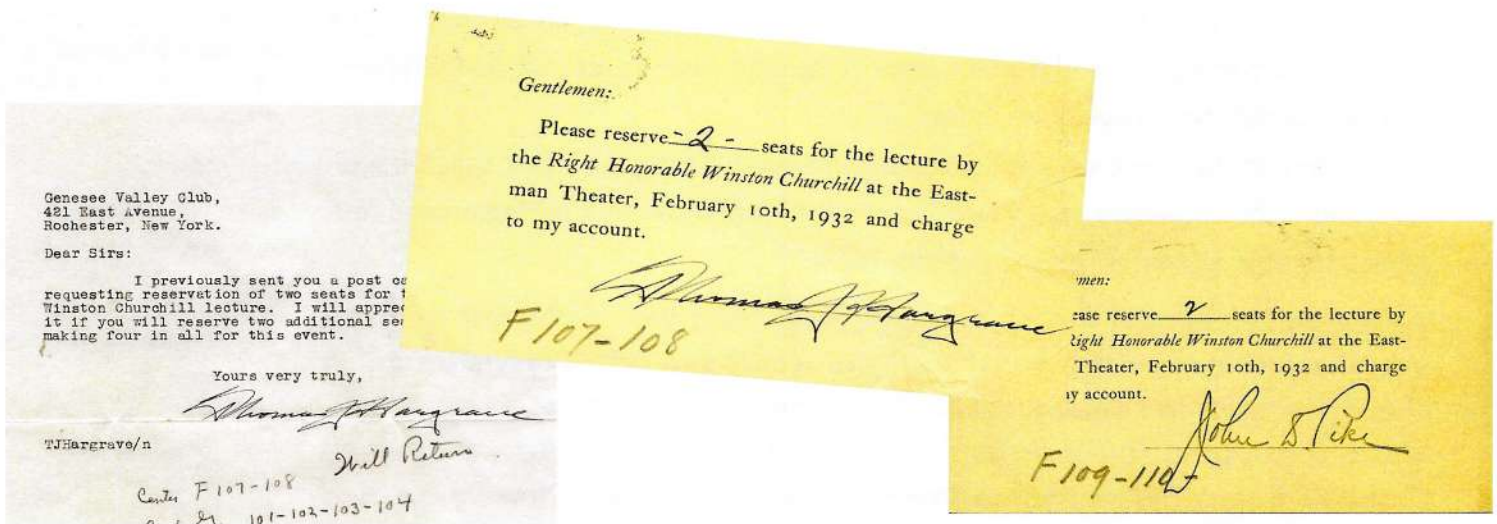 Genesee Valley Club,
421 East Avenue,
Rochester, New York.
Dear Sirs:
I previously sent you a post ca
requesting reservation of two seats for t
Winston Churchill lecture. I will apprec
it if you will reserve two additional sea
making four in all for this event.
Yours very truly,
Thomas J Hargrave
TJHargrave/n
Will Return
Center F 107-108
101-102-103-104
Gentlemen:
Please reserve - 2 - seats for the lecture by
the Right Honorable Winston Churchill at the East-
man Theater, February 10th, 1932 and charge
to my account.
Thomas J Hargrave
F107-108
men:
ease reserve 2 seats for the lecture by
Right Honorable Winston Churchill at the East-
Theater, February 10th, 1932 and charge
y account.
John D Pike
F109-110